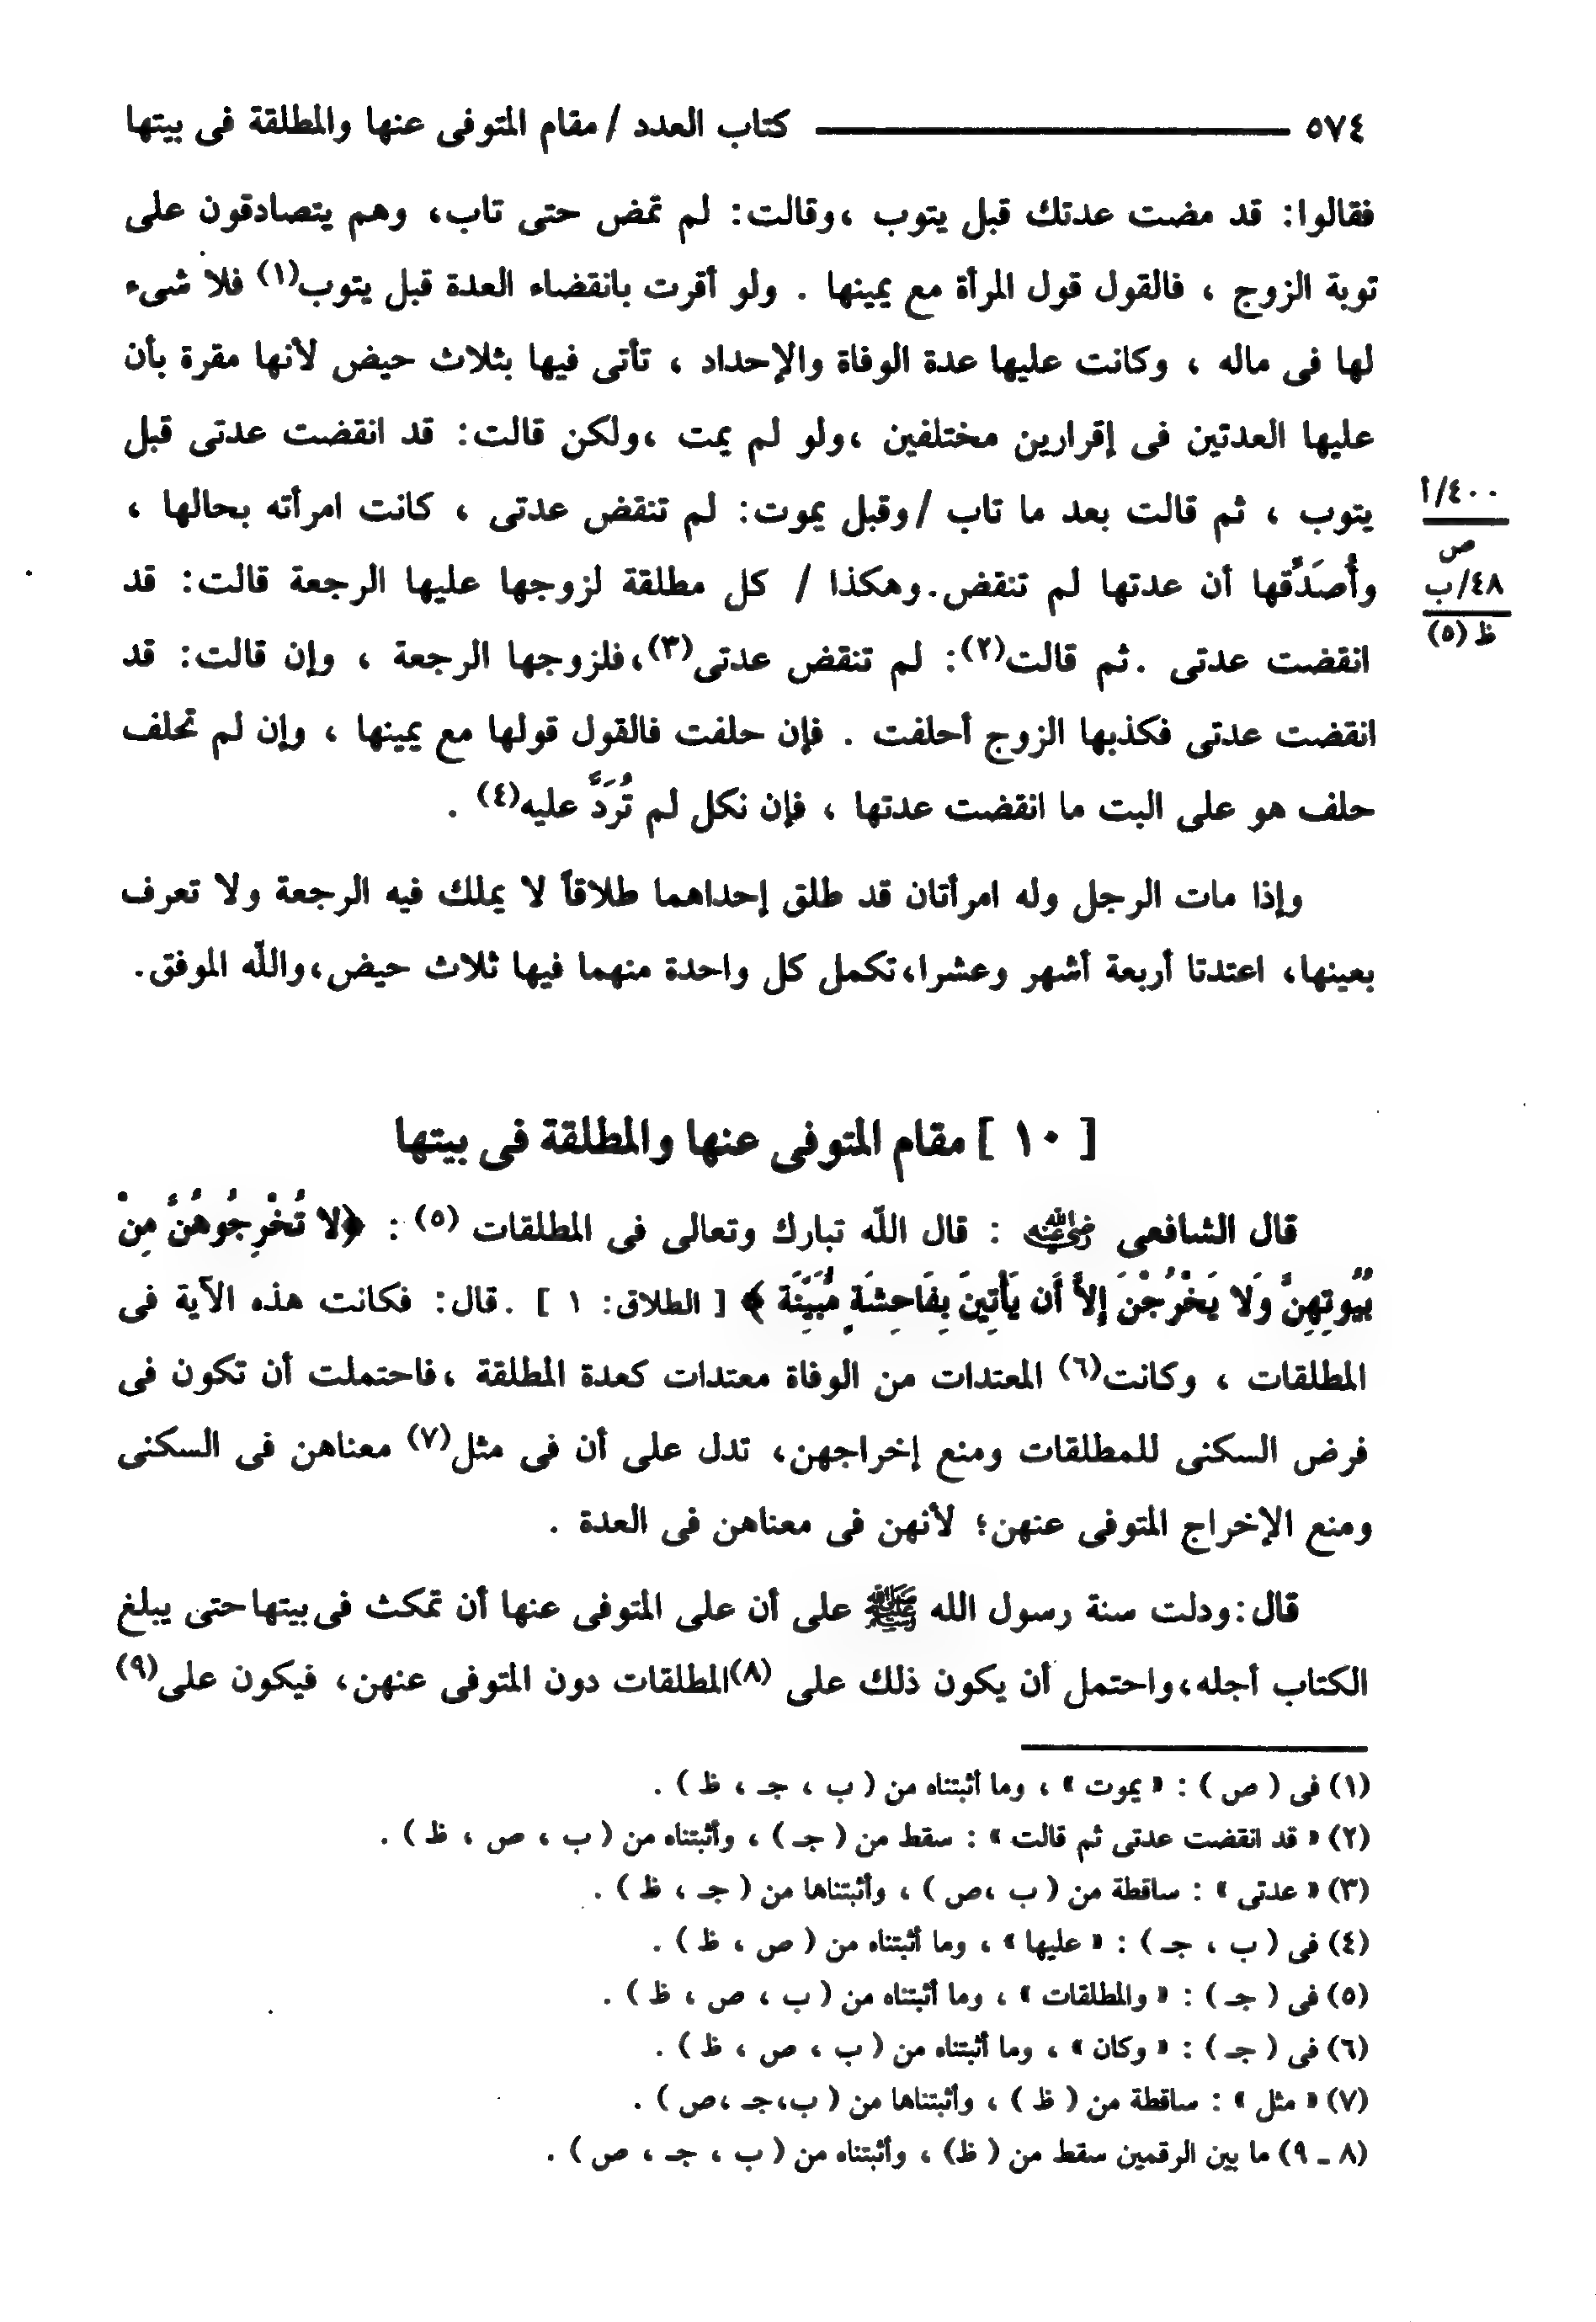 ٥٧٤ كتاب العدد / مقام المتوفى عنها والمطلقة فى بيتها
فقالوا: قد مضت عدتك قبل يتوب ،وقالت: لم تمض حتى تاب، وهم يتصادقون على
توبة الزوج ، فالقول قول المرأة مع يمينها . ولو أقرت بانقضاء العدة قبل يتوب(١) فلا شىء
لها فى ماله ، وكانت عليها عدة الوفاة والإحداد ، تأتى فيها بثلاث حيض لأنها مقرة بأن
عليها العدتين فى إقرارين مختلفين ،ولو لم يمت ،ولكن قالت: قد انقضت عدتى قبل
يتوب ، ثم قالت بعد ما تاب /وقبل يموت: لم تنقض عدتى ، كانت امرأته بحالها ،
وأُصَدِّقها أن عدتها لم تنقض.وهكذا / كل مطلقة لزوجها عليها الرجعة قالت: قد
انقضت عدتى .ثم قالت(٢): لم تنقض عدتى(٣)،فلزوجها الرجعة ، وإن قالت: قد
انقضت عدتى فكذبها الزوج أحلفت . فإن حلفت فالقول قولها مع يمينها ، وإن لم تحلف
حلف هو على البت ما انقضت عدتها ، فإن نكل لم تُرَدَّ عليه(٤) .
٤٠٠/أ
ص
٤٨/ب
ظ (٥)
وإذا مات الرجل وله امرأتان قد طلق إحداهما طلاقاً لا يملك فيه الرجعة ولا تعرف
بعينها، اعتدتا أربعة أشهر وعشرا،تكمل كل واحدة منهما فيها ثلاث حيض،والله الموفق.
[ ١٠ ] مقام المتوفى عنها والمطلقة فى بيتها
قال الشافعى رضي الله عنه : قال الله تبارك وتعالى فى المطلقات (٥) : ﴿لا تُخْرِجُوهُنَّ مِنْ
بُيُوتِهِنَّ وَلا يَخْرُجْنَ إِلاَّ أَن يَأْتِينَ بِفَاحِشَةٍ مُّبَيِّنَة ﴾ [ الطلاق: ١ ] .قال: فكانت هذه الآية فى
المطلقات ، وكانت(٦) المعتدات من الوفاة معتدات كعدة المطلقة ،فاحتملت أن تكون فى
فرض السكنى للمطلقات ومنع إخراجهن، تدل على أن فى مثل(٧) معناهن فى السكنى
ومنع الإخراج المتوفى عنهن؛ لأنهن فى معناهن فى العدة .
قال:ودلت سنة رسول الله ﷺ على أن على المتوفى عنها أن تمكث فى بيتها حتى يبلغ
الكتاب أجله،واحتمل أن يكون ذلك على (٨)المطلقات دون المتوفى عنهن، فيكون على(٩)
(١) فى ( ص ) : « يموت » ، وما أثبتناه من ( ب ، جـ ، ظ ) .
(٢) « قد انقضت عدتى ثم قالت » : سقط من ( جـ ) ، وأثبتناه من ( ب ، ص ، ظ ) .
(٣) « عدتى » : ساقطة من ( ب ،ص ) ، وأثبتناها من ( جـ ، ظ ) .
(٤) فى ( ب ، جـ ) : « عليها » ، وما أثبتناه من ( ص ، ظ ) .
(٥) فى ( جـ ) : « والمطلقات » ، وما أثبتناه من ( ب ، ص ، ظ ) .
(٦) فى ( جـ ) : « وكان » ، وما أثبتناه من ( ب ، ص ، ظ ) .
(٧) « مثل » : ساقطة من ( ظ ) ، وأثبتناها من ( ب،جـ ،ص ) .
(٨ ـ ٩) ما بين الرقمين سقط من ( ظ) ، وأثبتناه من ( ب ، جـ ، ص ) .